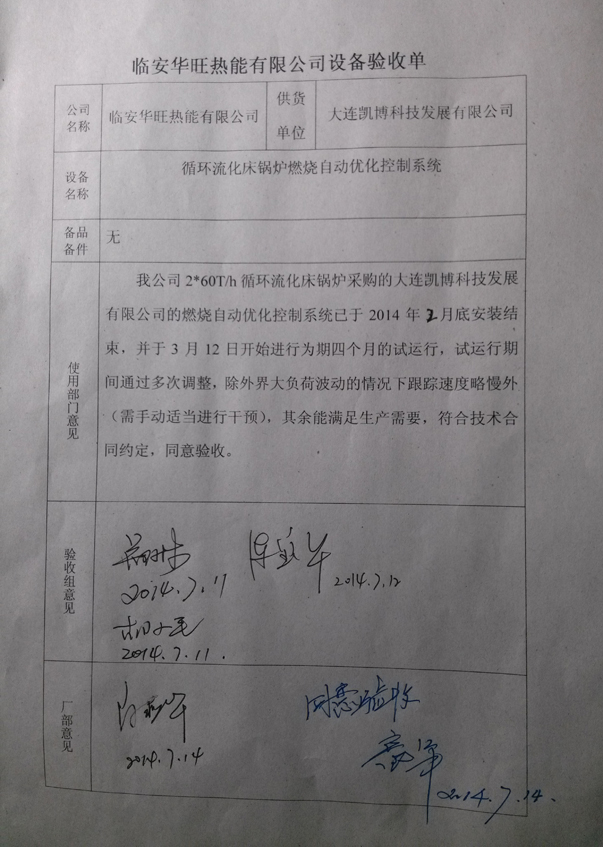 临安华旺热能有限公司设备验收单
公司
名称
临安华旺热能有限公司
供货
单位
大连凯博科技发展有限公司
设备
名称
循环流化床锅炉燃烧自动优化控制系统
备品
备件
无
使用部门意见
我公司 2*60T/h 循环流化床锅炉采购的大连凯博科技发展
有限公司的燃烧自动优化控制系统已于 2014 年 2 月底安装结
束，并于 3 月 12 日开始进行为期四个月的试运行，试运行期
间通过多次调整，除外界大负荷波动的情况下跟踪速度略慢外
（需手动适当进行干预），其余能满足生产需要，符合技术合
同约定，同意验收。
验收组意见
2014.7.11
2014.7.12
2014.7.11.
厂部意见
2014.7.14
同意验收
2014.7.14.